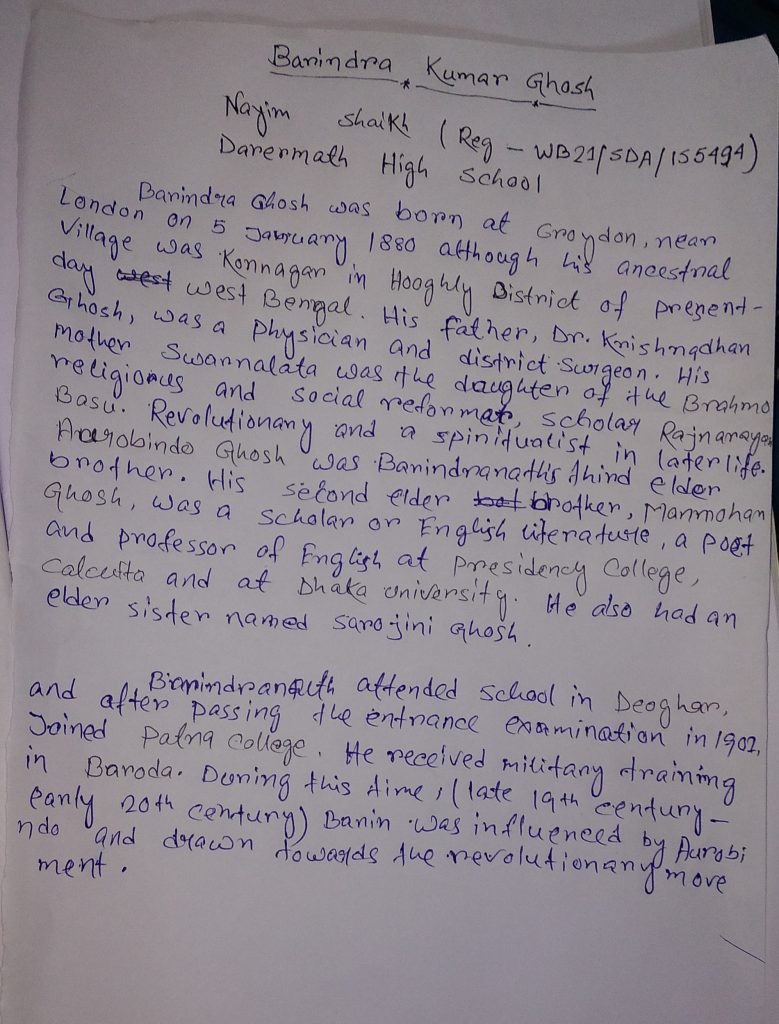 Barindra Kumar Ghosh
Nayim Shaikh (Reg - WB21/SDA/155494)
Darermath High School
Barindra Ghosh was born at Groydon, near
London on 5 January 1880 although his ancestral
Village was Konnagar in Hooghly District of present-
day west West Bengal. His father, Dr. Krishnadhan
Ghosh, was a physician and district surgeon. His
mother Swarnalata was the daughter of the Brahmo
religious and social reformer, scholar Rajnarayan
Basu. Revolutionary and a spiritualist in later life.
Aurobindo Ghosh was Barindranath's third elder
brother. His second elder brother, Manmohan
Ghosh, was a scholar or English literature, a poet
and professor of English at Presidency College,
Calcutta and at Dhaka University. He also had an
elder sister named Sarojini Ghosh.
Barindranath attended school in Deoghar,
and after passing the entrance examination in 1902,
Joined Patna College. He received military training
in Baroda. During this time, (late 19th century-
early 20th century) Barin was influenced by Aurobi
ndo and drawn towards the revolutionary move
ment.